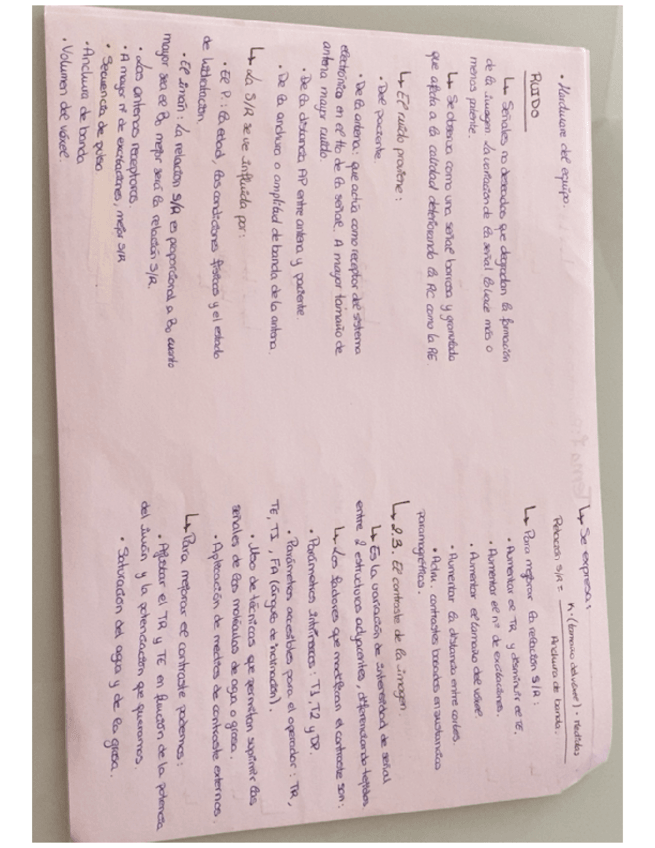 • Hardware del equipo.
RUIDO
↳ Señales no deseadas que degradan la formación
de la imagen. La variación de la señal la hace más o
menos patente.
↳ Se observa como una señal borrosa y granulada
que afecta a la calidad deteriorando la RC como la RE.
↳ El ruido proviene:
• Del paciente.
• De la antena: que actúa como receptor del sistema
electrónico en el tto de la señal. A mayor tamaño de
antena mayor ruido.
• De la distancia AP entre antena y paciente.
• De la anchura o amplitud de banda de la antena.
↳ La S/R se ve influida por:
• El P.: la edad, las condiciones físicas y el estado
de hidratación.
• El imán: La relación S/R es proporcional a B0 cuanto
mayor sea el B0 mejor será la relación S/R.
• Las antenas receptoras.
• A mayor nº de excitaciones, mejor S/R
• Secuencia de pulso
• Anchura de banda
• Volumen del vóxel.
↳ Se expresa:
Relación S/R = n · (tamaño del vóxel) · medidas
Anchura de banda.
↳ Para mejorar la relación S/R:
• Aumentar el TR y disminuir el TE.
• Aumentar el nº de excitaciones.
• Aumentar el tamaño del vóxel
• Aumentar la distancia entre cortes.
• Adm. contrastes basados en sustancias
paramagnéticas.
↳ 2.3. El contraste de la imagen.
↳ Es la variación de intensidad de señal
entre 2 estructuras adyacentes, diferenciando tejidos
↳ Los factores que modifican el contraste son:
• Parámetros intrínsecos: T1, T2 y DP.
• Parámetros accesibles para el operador: TR,
TE, TI, FA (ángulo de inclinación).
• Uso de técnicas que permitan suprimir las
señales de las moléculas de agua o grasa.
• Aplicación de medios de contraste externos.
↳ Para mejorar el contraste podemos:
• Ajustar el TR y TE en función de la potencia
del imán y la potenciación que queramos.
• Saturación del agua y de la grasa.